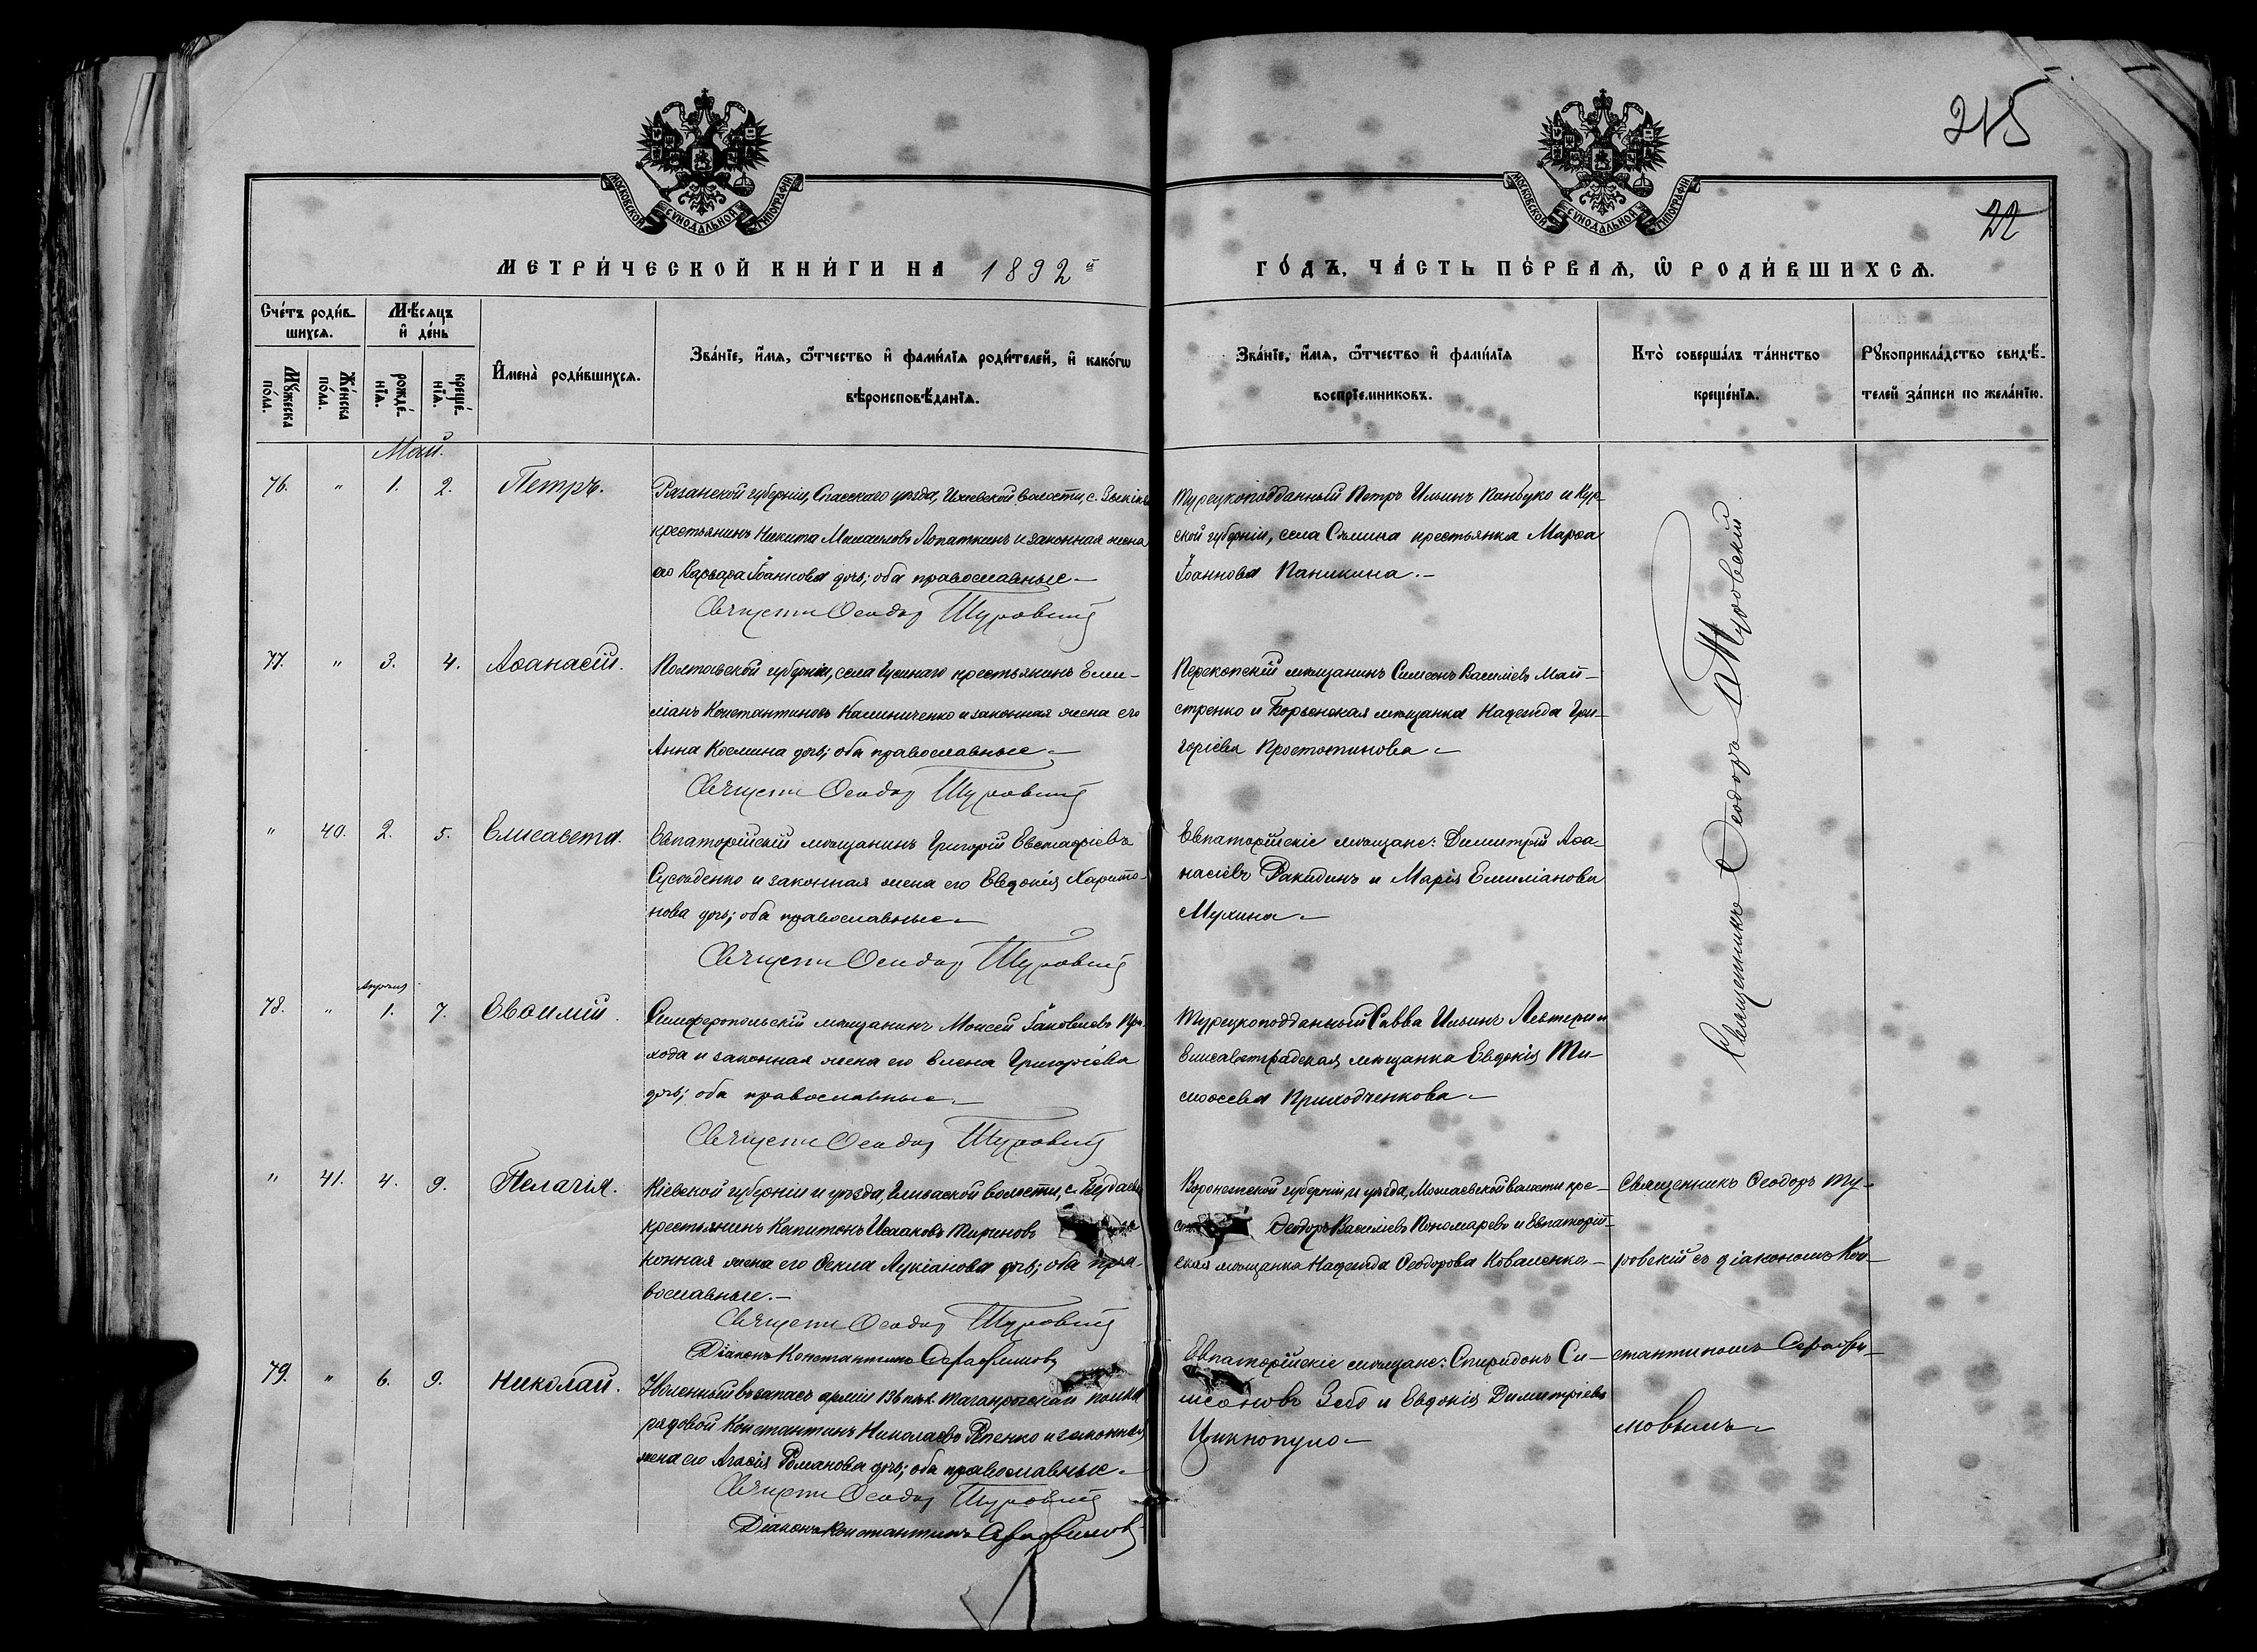 215
22
МОСКОВСКОЙ СѴНОДАЛЬНОЙ ТИПОГРАФІИ
МОСКОВСКОЙ СѴНОДАЛЬНОЙ ТИПОГРАФІИ
МЕТРИ́ЧЕСКОЙ КНИ́ГИ НА 1892й
ГО́ДЪ, ЧА́СТЬ ПЕ́РВАѦ, Ѽ РОДИ́ВШИХСѦ.
Сче́тъ роди́в-
шихсѧ.
Мѣ́сѧцъ
и҆ де́нь
Мꙋ́жеска
по́ла.
Же́нска
по́ла.
рожде́-
нїѧ.
креще́-
нїѧ.
И҆мена̀ роди́вшихсѧ.
Зва́нїе, и҆́мѧ, ѻ҆́тчество и҆ фами́лїѧ роди́телей, и҆ како́гѡ
вѣроисповѣ́данїѧ.
Зва́нїе, и҆́мѧ, ѻ҆́тчество и҆ фами́лїѧ
воспрїе́мниковъ.
Кто̀ соверша́лъ та́инство
креще́нїѧ.
Рꙋкоприкла́дство свидѣ́-
телей за́писи по жела́нїю.
Май.
76. " 1. 2. Петръ.
Рязанской губерніи, Спасскаго уѣзда, Ижевской волости, с.
крестьянинъ Никита Михаиловъ Лопаткинъ и законная жена
его Варвара Іоаннова дочь; оба православные.–
Священ Ѳеодоръ Туровскій
Турецкоподданный Петръ Ильинъ Панбуко и Кур-
ской губерніи, села Сѣмина крестьянка Марѳа
Іоаннова Паникина.–
77. " 3. 4. Аѳанасій.
Полтавской губерніи, села Гусинаго крестьянинъ Еми-
ліанъ Константиновъ Калиниченко и законная жена его
Анна Космина дочь; оба православные.–
Священ Ѳеодоръ Туровскій
Перекопскій мѣщанинъ Симеонъ Василіевъ Май-
стренко и мѣщанка Надежда Гри-
горіева Простотинова.–
" 40. 2. 5. Елисавета.
Евпаторійскій мѣщанинъ Григорій Евстафіевъ
и законная жена его Евдокія Харито-
нова дочь; оба православные.–
Священ Ѳеодоръ Туровскій
Евпаторійскіе мѣщане: Димитрій Аѳа-
насіевъ Ракидинъ и Марія Емиліанова
Мухина.–
Апрѣля
78. " 1. 7. Евѳимій.
Симферопольскій мѣщанинъ Моисей Іаковлевъ При-
хода и законная жена его Елена Григоріева
дочь; оба православные.–
Священ Ѳеодоръ Туровскій
Турецкоподданный Савва Ильинъ Левтери и
Елисаветградская мѣщанка Евдокія Ти-
моѳеева Приходченкова.–
Священникъ Ѳеодоръ Туровскій
" 41. 4. 9. Пелагія.
Кіевской губерніи и уѣзда, Глевахской волости, с.
крестьянинъ Капитонъ Исааковъ Тириновъ
конная жена его Ѳекла Лукіанова дочь; оба пра-
вославные.–
Священ Ѳеодоръ Туровскій
Діаконъ Константинъ Серафимовъ
Воронежской губерніи и уѣзда, Можаевской волости кре-
Ѳеодоръ Василіевъ Пономаревъ и Евпаторій-
ская мѣщанка Надежда Ѳеодорова Коваленко–
Священникъ Ѳеодоръ Ту-
ровскій съ діакономъ Кон-
стантиномъ Серафи-
мовымъ.–
79. " 6. 9. Николай.
Уволенный въ запасъ арміи 136 пѣх. Таганрогскаго полка
рядовой Константинъ Николаевъ Рѣпенко и законная
жена его Агаѳія Романова дочь; оба православные.–
Священ Ѳеодоръ Туровскій
Діаконъ Константинъ Серафимовъ
Евпаторійскіе мѣщане: Спиридонъ Си-
меоновъ Зебо и Евдокія Димитріева
Цикнопуло.–